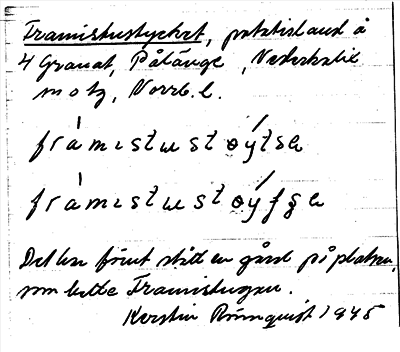 Framistustycket, potatisland å
4 Granat, Pålänge, Nederkalix
, Norrb. l.
fràmıstustøýtsa
fràmıstustøýfsa
Det har förut stått en gård på platsen,
som hette Framistugan.
Kerstin Rönnquist 1945